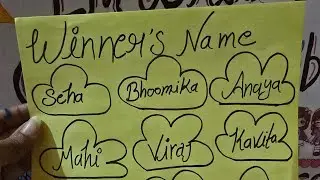 Winner's Name
Seha Bhoomika Anaya
Mahi Viraj Kavita